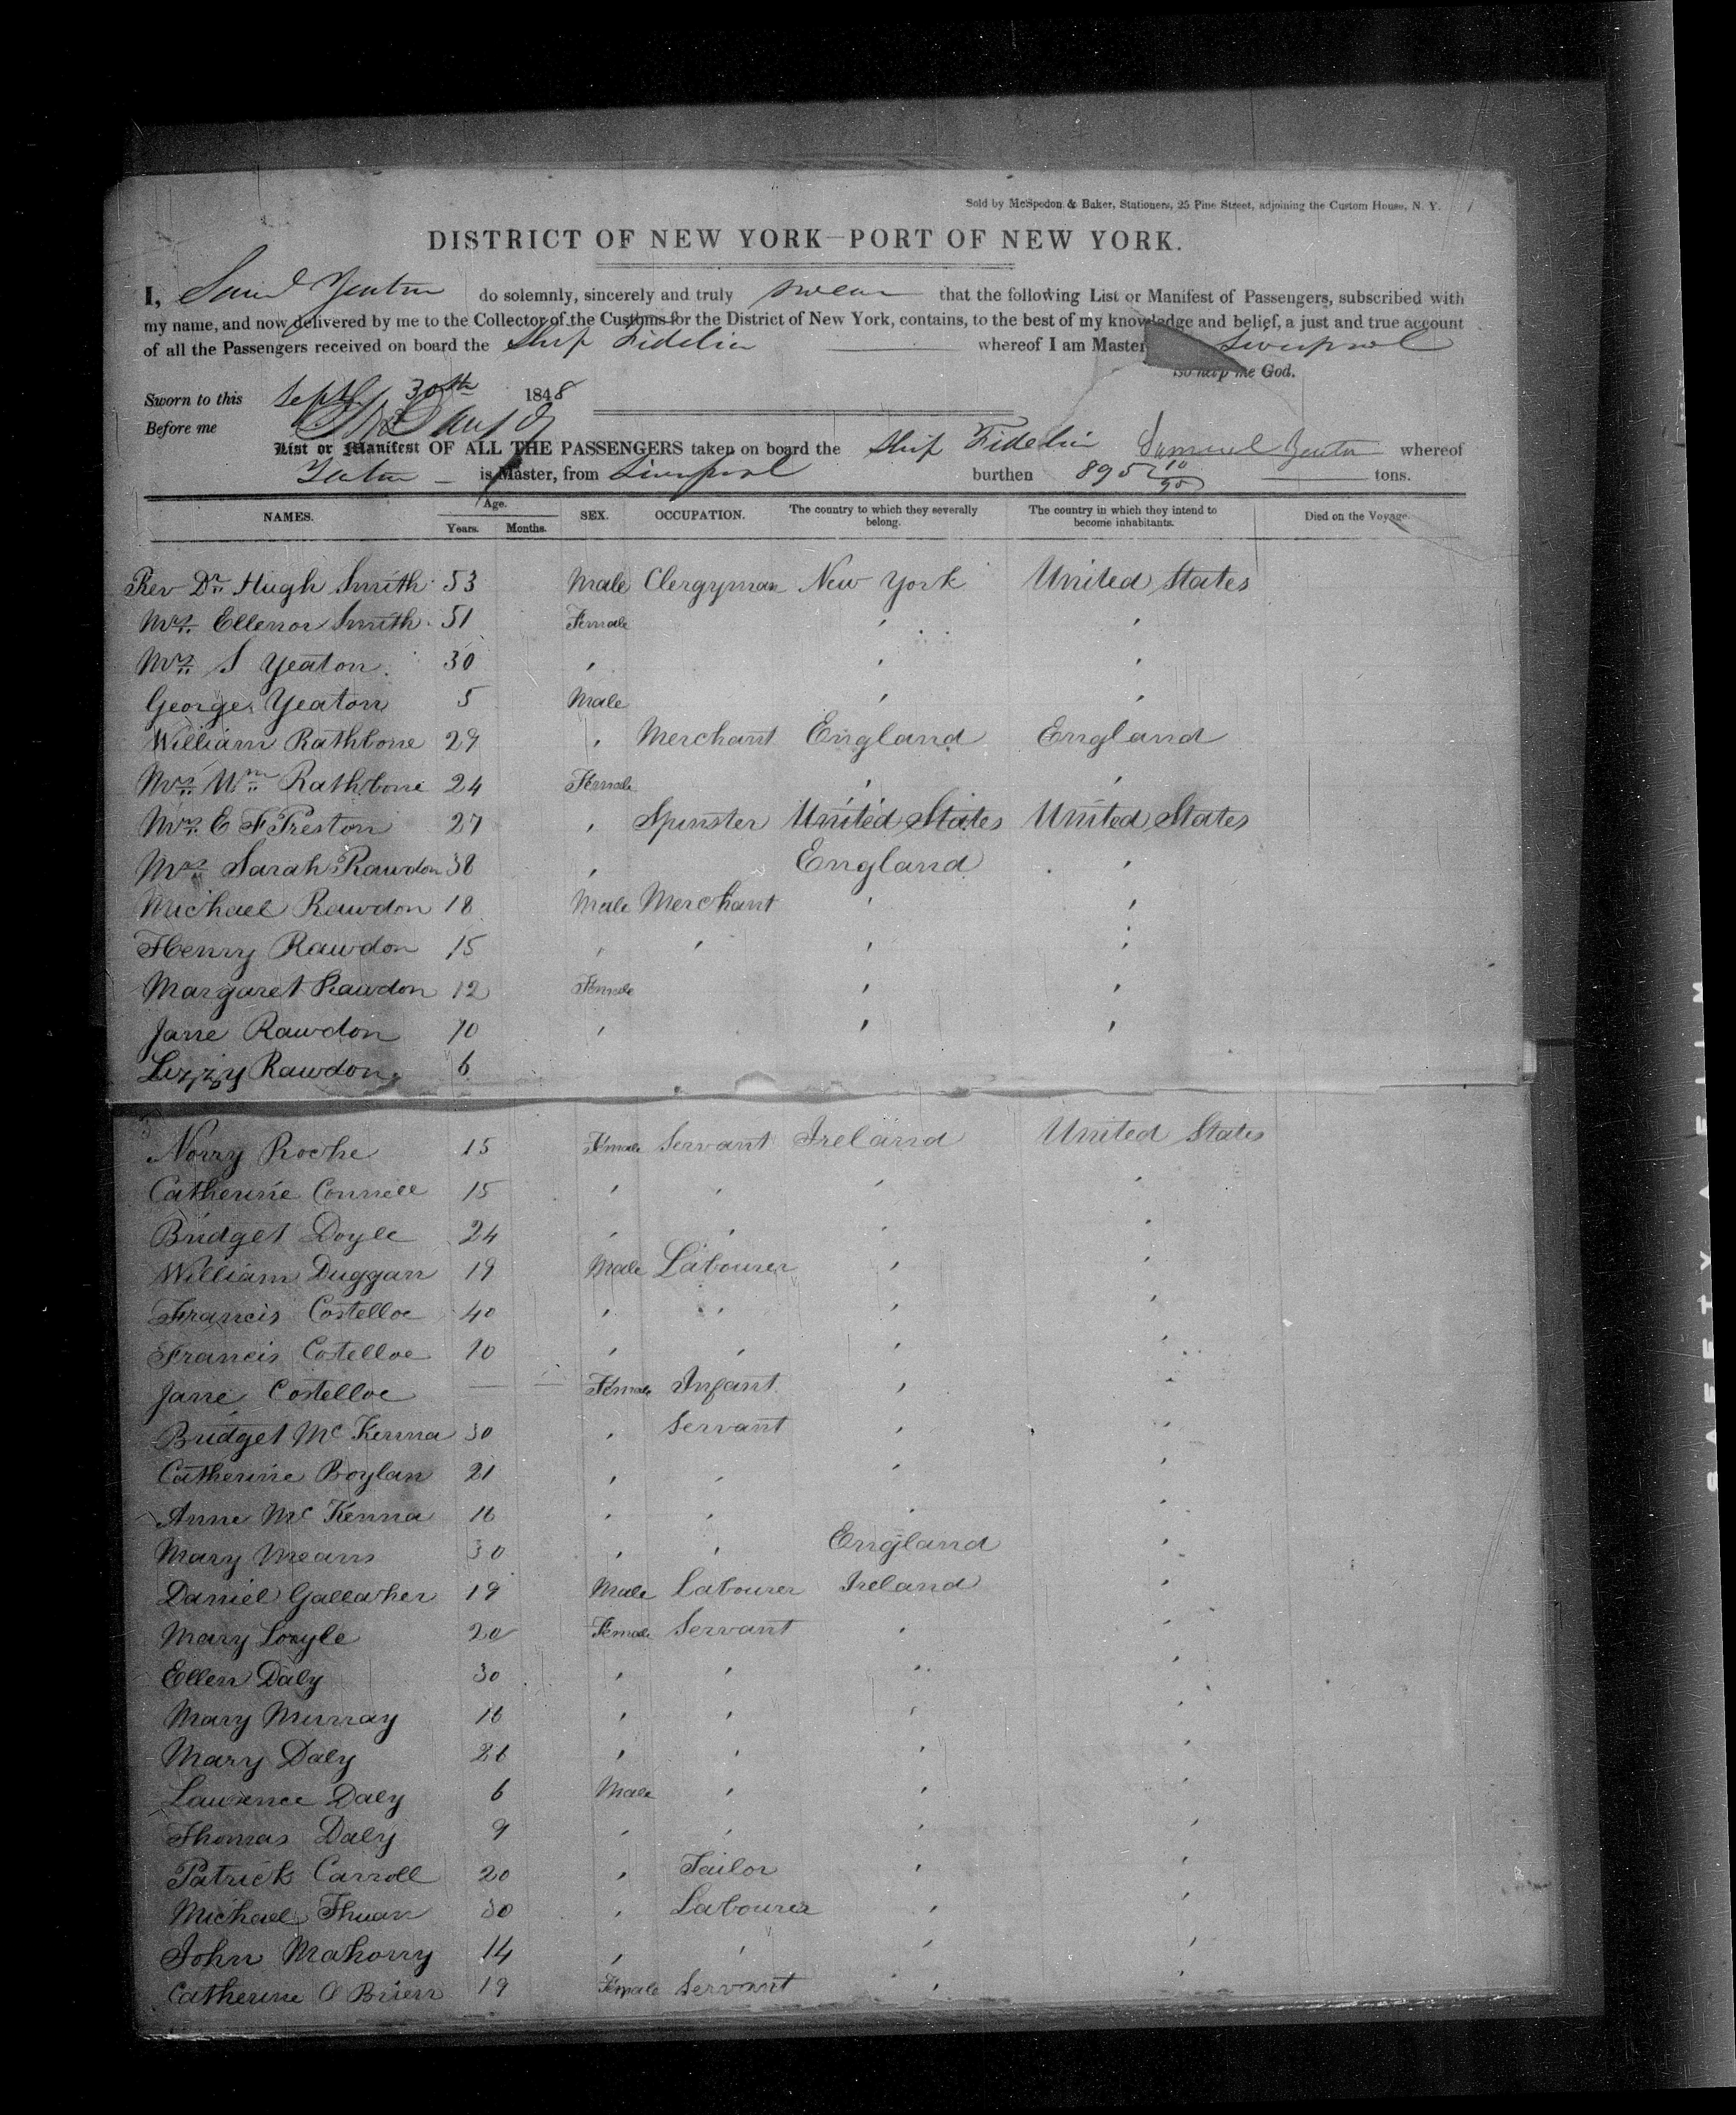 Sold by McSpedon & Baker, Stationers, 25 Pine Street, adjoining the Custom House, N. Y.
DISTRICT OF NEW YORK—PORT OF NEW YORK.
I, Saml Yeaton do solemnly, sincerely and truly swear that the following List or Manifest of Passengers, subscribed with
my name, and now delivered by me to the Collector of the Customs for the District of New York, contains, to the best of my knowledge and belief, a just and true account
of all the Passengers received on board the Ship Fidelia whereof I am Master Liverpool
So help me God.
Sworn to this Sept 30th 1848
Before me
List or Manifest OF ALL THE PASSENGERS taken on board the Ship Fidelia Samuel Yeaton whereof
Yeaton is Master, from Liverpool burthen 895 tons.
NAMES. Age. Years. Months. SEX. OCCUPATION. The country to which they severally belong. The country in which they intend to become inhabitants. Died on the Voyage.
Rev Dr. Hugh Smith 53 Male Clergyman New York United States
Mrs. Ellenor Smith 51 Female ' '
Mrs. S Yeaton 30 ' ' '
George Yeaton 5 Male ' '
William Rathbone 29 ' Merchant England England
Mrs. Wm. Rathbone 24 Female ' '
Mrs. E F Preston 27 ' Spinster United States United States
Mrs Sarah Rawdon 38 ' England '
Michael Rawdon 18 Male Merchant ' '
Henry Rawdon 15 ' ' ' '
Margaret Rawdon 12 Female ' '
Jane Rawdon 10 ' ' '
Lizzy Rawdon 6
Norry Roche 15 Female Servant Ireland United States
Catherine Connell 15 ' ' ' '
Bridget Doyle 24 ' ' ' '
William Duggan 19 Male Labourer ' '
Francis Costelloe 40 ' ' ' '
Francis Costelloe 10 ' ' ' '
Jane Costelloe — — Female Infant ' '
Bridget Mc Kenna 30 ' Servant ' '
Catherine Boylan 21 ' ' ' '
Anne Mc Kenna 16 ' ' ' '
Mary Means 30 ' ' England '
Daniel Gallagher 19 Male Labourer Ireland '
Mary 20 Female Servant ' '
Ellen Daly 30 ' ' ' '
Mary Murray 16 ' ' ' '
Mary Daly 26 ' ' ' '
Lawrence Daly 6 Male ' ' '
Thomas Daly 9 ' ' ' '
Patrick Carroll 20 ' Tailor ' '
Michael 30 ' Labourer ' '
John Mahony 14 ' ' ' '
Catherine O Brien 19 Female Servant ' '
SAFETY FILM